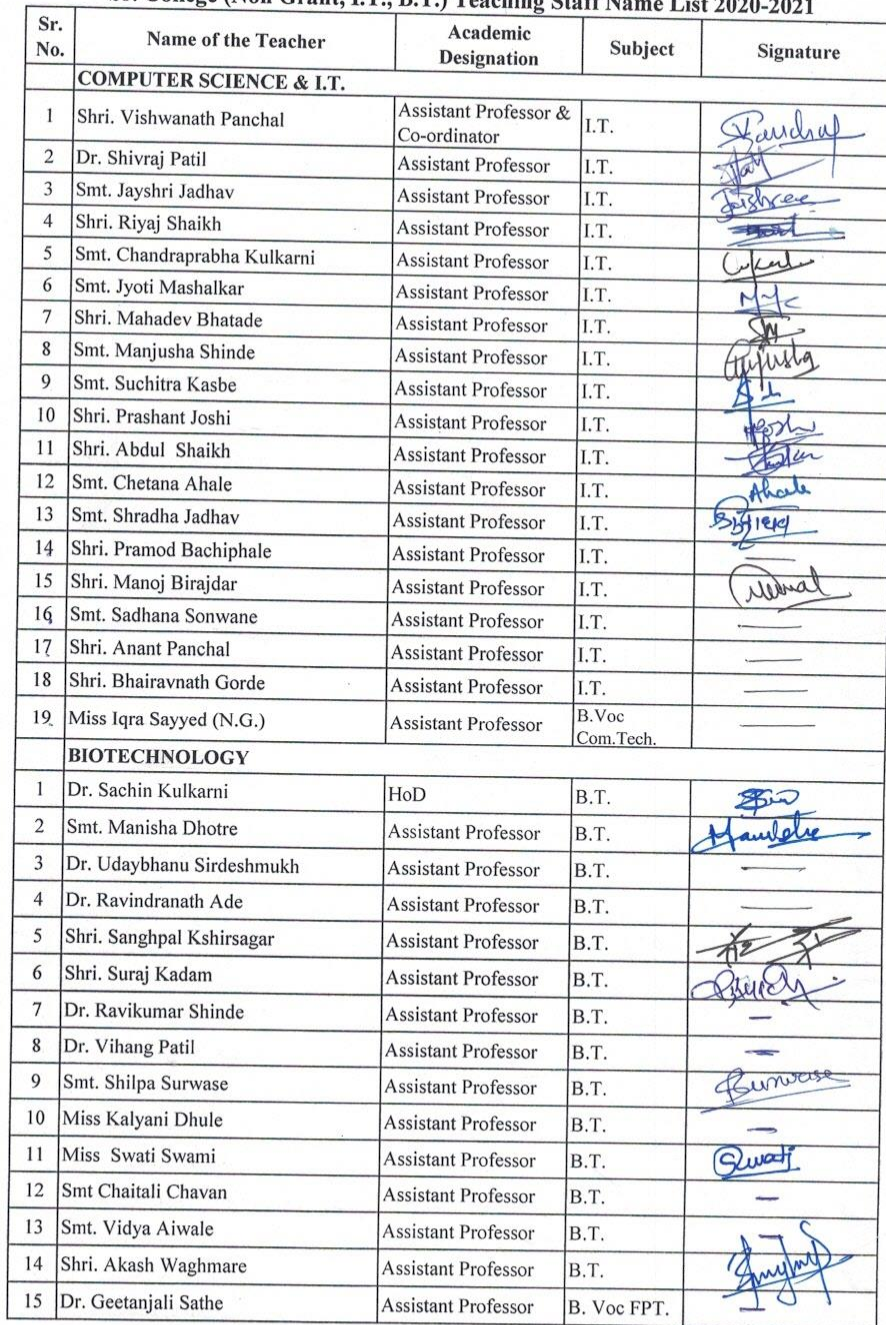 College (Non Grant, I.T., B.T.) Teaching Staff Name List 2020-2021
Sr. No. Name of the Teacher Academic Designation Subject Signature
COMPUTER SCIENCE & I.T.
1 Shri. Vishwanath Panchal Assistant Professor & Co-ordinator I.T. Panchal
2 Dr. Shivraj Patil Assistant Professor I.T.
3 Smt. Jayshri Jadhav Assistant Professor I.T. Jaishree
4 Shri. Riyaj Shaikh Assistant Professor I.T.
5 Smt. Chandraprabha Kulkarni Assistant Professor I.T.
6 Smt. Jyoti Mashalkar Assistant Professor I.T.
7 Shri. Mahadev Bhatade Assistant Professor I.T.
8 Smt. Manjusha Shinde Assistant Professor I.T.
9 Smt. Suchitra Kasbe Assistant Professor I.T.
10 Shri. Prashant Joshi Assistant Professor I.T.
11 Shri. Abdul Shaikh Assistant Professor I.T.
12 Smt. Chetana Ahale Assistant Professor I.T. Ahale
13 Smt. Shradha Jadhav Assistant Professor I.T.
14 Shri. Pramod Bachiphale Assistant Professor I.T.
15 Shri. Manoj Birajdar Assistant Professor I.T.
16 Smt. Sadhana Sonwane Assistant Professor I.T.
17 Shri. Anant Panchal Assistant Professor I.T.
18 Shri. Bhairavnath Gorde Assistant Professor I.T.
19 Miss Iqra Sayyed (N.G.) Assistant Professor B.Voc Com.Tech.
BIOTECHNOLOGY
1 Dr. Sachin Kulkarni HoD B.T.
2 Smt. Manisha Dhotre Assistant Professor B.T.
3 Dr. Udaybhanu Sirdeshmukh Assistant Professor B.T.
4 Dr. Ravindranath Ade Assistant Professor B.T.
5 Shri. Sanghpal Kshirsagar Assistant Professor B.T.
6 Shri. Suraj Kadam Assistant Professor B.T.
7 Dr. Ravikumar Shinde Assistant Professor B.T.
8 Dr. Vihang Patil Assistant Professor B.T.
9 Smt. Shilpa Surwase Assistant Professor B.T. Surwase
10 Miss Kalyani Dhule Assistant Professor B.T.
11 Miss Swati Swami Assistant Professor B.T. Swati
12 Smt Chaitali Chavan Assistant Professor B.T.
13 Smt. Vidya Aiwale Assistant Professor B.T.
14 Shri. Akash Waghmare Assistant Professor B.T.
15 Dr. Geetanjali Sathe Assistant Professor B. Voc FPT.